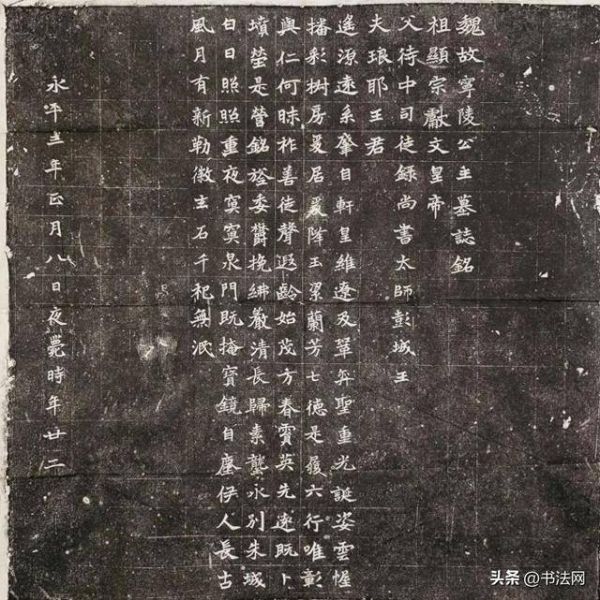 魏故寧陵公主墓誌銘
祖顯宗獻文皇帝
父待中司徒録尚書太師彭城王
夫琅耶王君
遙源遠系肇自軒皇維遼及鞏弈聖重光誕姿雲幄
播彩椒房爰居爰降玉翠蘭芳七德是履六行唯彰
與仁何昧祚善徒聲遐齡始茂方春霣英先遠既卜
墳塋是營銘旌委欝挽紼嚴清長歸素壟永別朱城
白日照照重夜冥冥泉門既掩寶鏡自塵伊人長古
風月有新勒徽玄石千祀無泯
永平三年正月八日夜薨時年廿二
头条@书法网